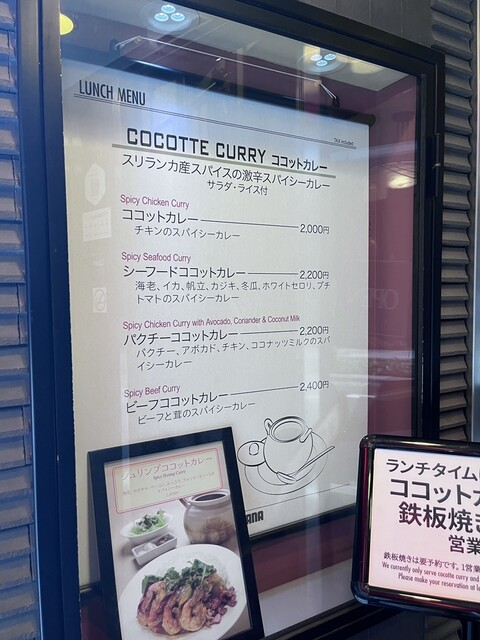 LUNCH MENU
TAX included
COCOTTE CURRY ココットカレー
スリランカ産スパイスの激辛スパイシーカレー
サラダ・ライス付
Spicy Chicken Curry
ココットカレー 2,000円
チキンのスパイシーカレー
Spicy Seafood Curry
シーフードココットカレー 2,200円
海老、イカ、帆立、カジキ、冬瓜、ホワイトセロリ、プチ
トマトのスパイシーカレー
Spicy Chicken Curry with Avocado, Coriander & Coconut Milk
パクチーココットカレー 2,200円
パクチー、アボカド、チキン、ココナッツミルクのスパ
イシーカレー
Spicy Beef Curry
ビーフココットカレー 2,400円
ビーフと茸のスパイシーカレー
ANA
シュリンプココットカレー
Spicy Shrimp Curry
ランチタイム
ココット
鉄板焼き
営業
鉄板焼きは要予約です。1営業
We currently only serve cocotte curry and
Please make your reservation at le